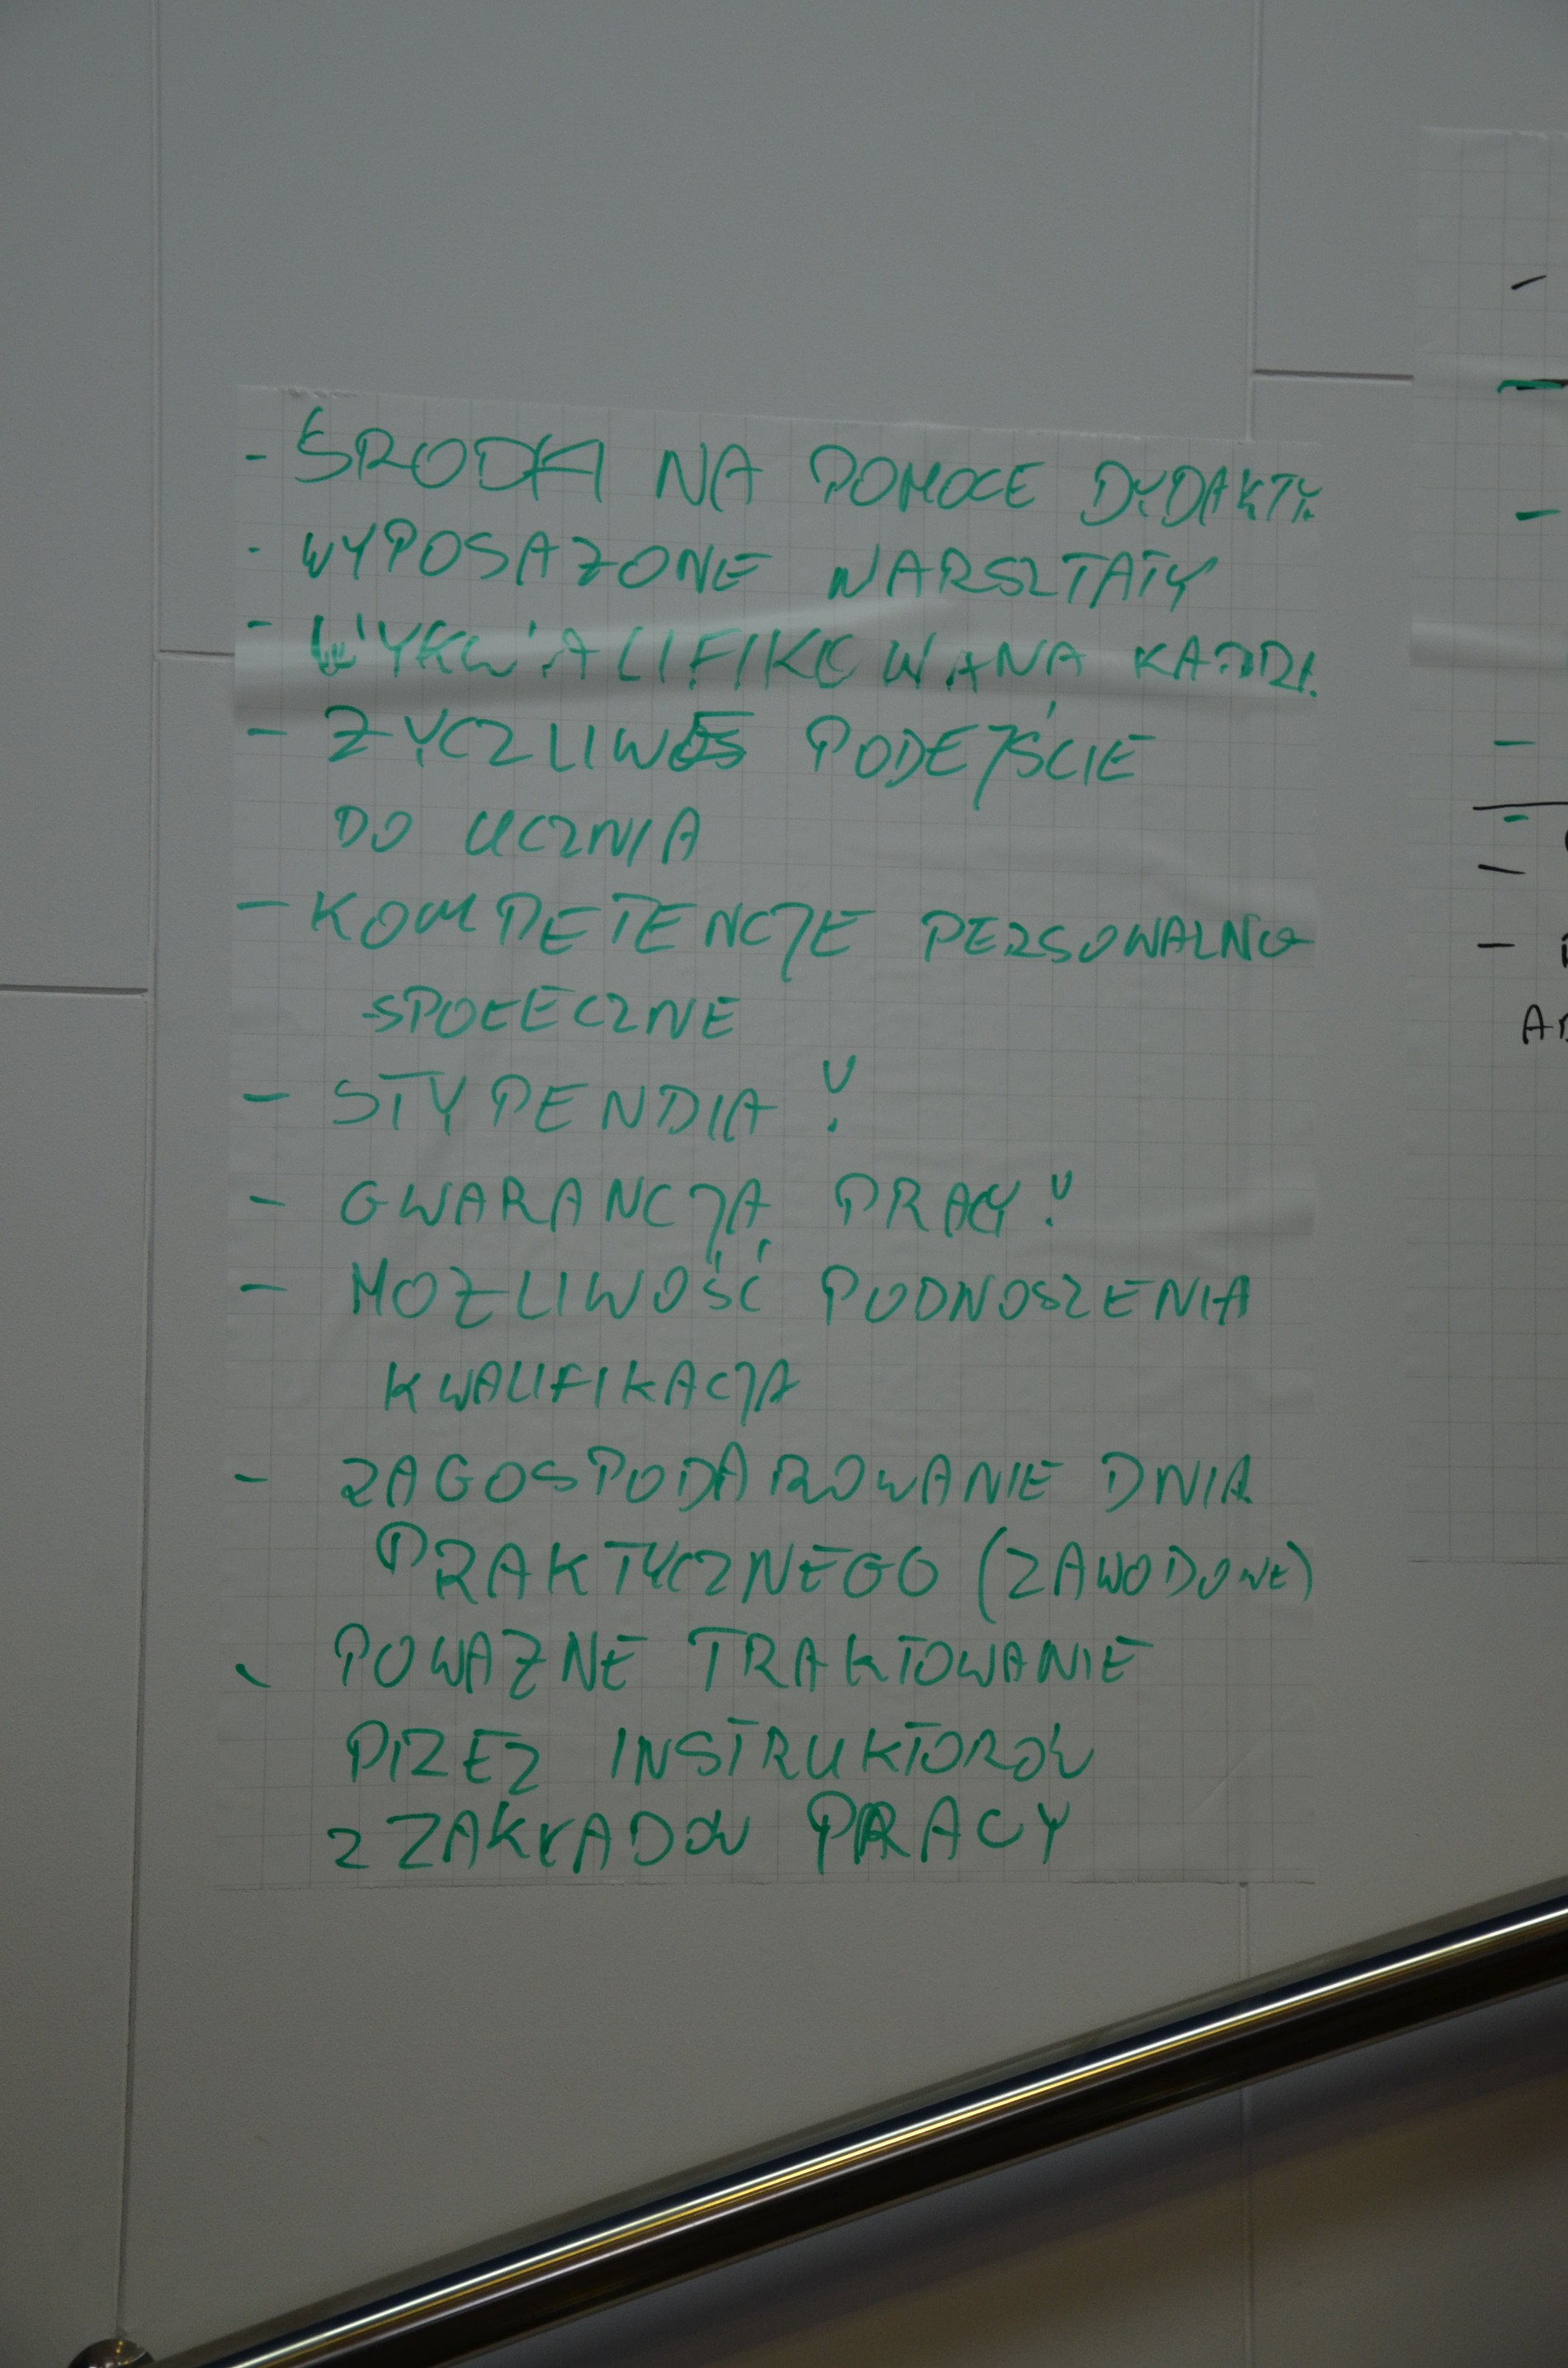 - ŚRODKI NA POMOCE DYDAKTY.
- WYPOSAŻONE WARSZTATY
- WYKWALIFIKOWANA KADRA
- ŻYCZLIWE PODEJŚCIE
DO UCZNIA
- KOMPETENCJE PERSONALNO
-SPOŁECZNE
- STYPENDIA!
- GWARANCJA PRACY!
- MOŻLIWOŚĆ PODNOSZENIA
KWALIFIKACJA
- ZAGOSPODAROWANIE DNIA
PRAKTYCZNEGO (ZAWODOWE)
- POWAŻNE TRAKTOWANIE
PRZEZ INSTRUKTORÓW
Z ZAKŁADÓW PRACY